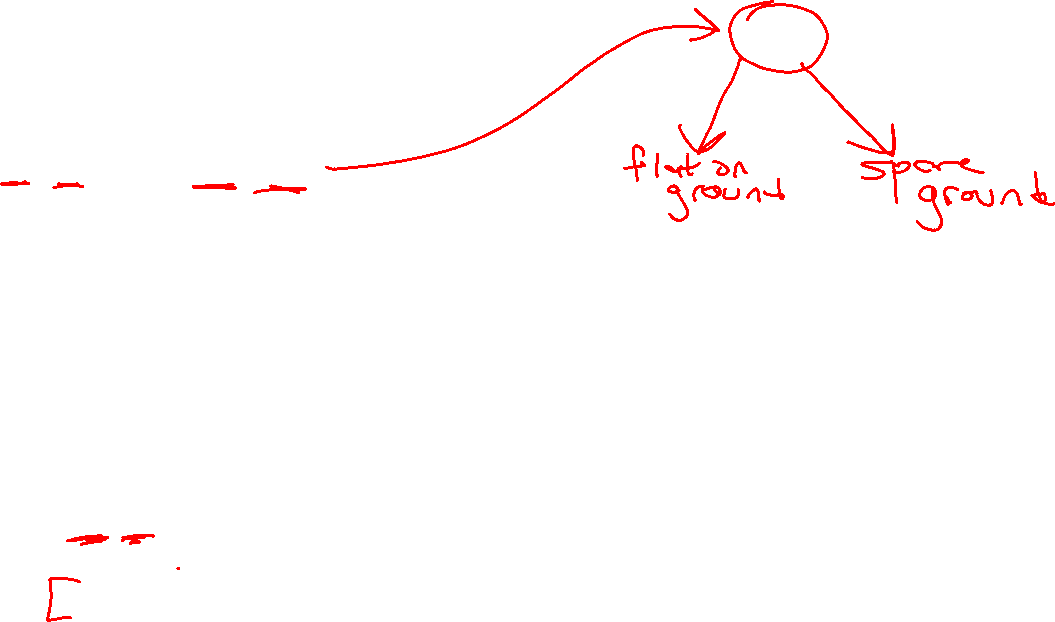 flat on
ground
spare
ground
[